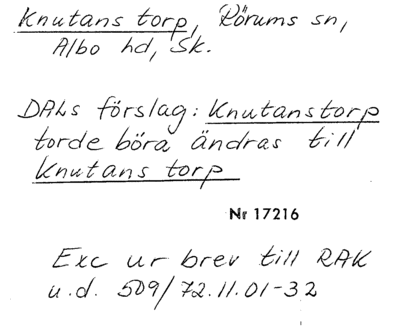 Knutans torp, Rörums sn,
Albo hd, Sk.
DALs förslag: Knutanstorp
torde böra ändras till
Knutans torp
Nr 17216
Exc ur brev till RAK
u.d. 509/72.11.01-32